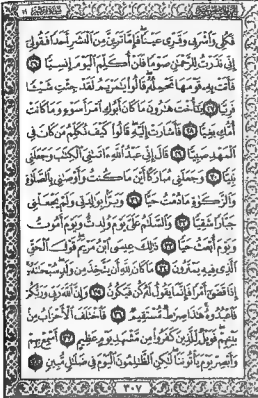 فَكُلِي وَاشْرَبِي وَقَرِّي عَيْنًا فَإِمَّا تَرَيِنَّ مِنَ الْبَشَرِ أَحَدًا فَقُولِي
إِنِّي نَذَرْتُ لِلرَّحْمَٰنِ صَوْمًا فَلَنْ أُكَلِّمَ الْيَوْمَ إِنسِيًّا ٢٦
فَأَتَتْ بِهِ قَوْمَهَا تَحْمِلُهُ قَالُوا يَٰمَرْيَمُ لَقَدْ جِئْتِ شَيْئًا
فَرِيًّا ٢٧ يَٰأُخْتَ هَٰرُونَ مَا كَانَ أَبُوكِ امْرَأَ سَوْءٍ وَمَا كَانَتْ
أُمُّكِ بَغِيًّا ٢٨ فَأَشَارَتْ إِلَيْهِ قَالُوا كَيْفَ نُكَلِّمُ مَن كَانَ فِي
الْمَهْدِ صَبِيًّا ٢٩ قَالَ إِنِّي عَبْدُ اللَّهِ ءَاتَىٰنِيَ الْكِتَٰبَ وَجَعَلَنِي
نَبِيًّا ٣٠ وَجَعَلَنِي مُبَارَكًا أَيْنَ مَا كُنتُ وَأَوْصَٰنِي بِالصَّلَوٰةِ
وَالزَّكَوٰةِ مَا دُمْتُ حَيًّا ٣١ وَبَرًّا بِوَٰلِدَتِي وَلَمْ يَجْعَلْنِي
جَبَّارًا شَقِيًّا ٣٢ وَالسَّلَٰمُ عَلَيَّ يَوْمَ وُلِدتُّ وَيَوْمَ أَمُوتُ
وَيَوْمَ أُبْعَثُ حَيًّا ٣٣ ذَٰلِكَ عِيسَى ابْنُ مَرْيَمَ قَوْلَ الْحَقِّ
الَّذِي فِيهِ يَمْتَرُونَ ٣٤ مَا كَانَ لِلَّهِ أَن يَتَّخِذَ مِن وَلَدٍ سُبْحَٰنَهُ
إِذَا قَضَىٰ أَمْرًا فَإِنَّمَا يَقُولُ لَهُ كُن فَيَكُونُ ٣٥ وَإِنَّ اللَّهَ رَبِّي وَرَبُّكُمْ
فَاعْبُدُوهُ هَٰذَا صِرَٰطٌ مُّسْتَقِيمٌ ٣٦ فَاخْتَلَفَ الْأَحْزَابُ مِن
بَيْنِهِمْ فَوَيْلٌ لِّلَّذِينَ كَفَرُوا مِن مَّشْهَدِ يَوْمٍ عَظِيمٍ ٣٧ أَسْمِعْ بِهِمْ
وَأَبْصِرْ يَوْمَ يَأْتُونَنَا لَٰكِنِ الظَّٰلِمُونَ الْيَوْمَ فِي ضَلَٰلٍ مُّبِينٍ ٣٨
٣٠٧